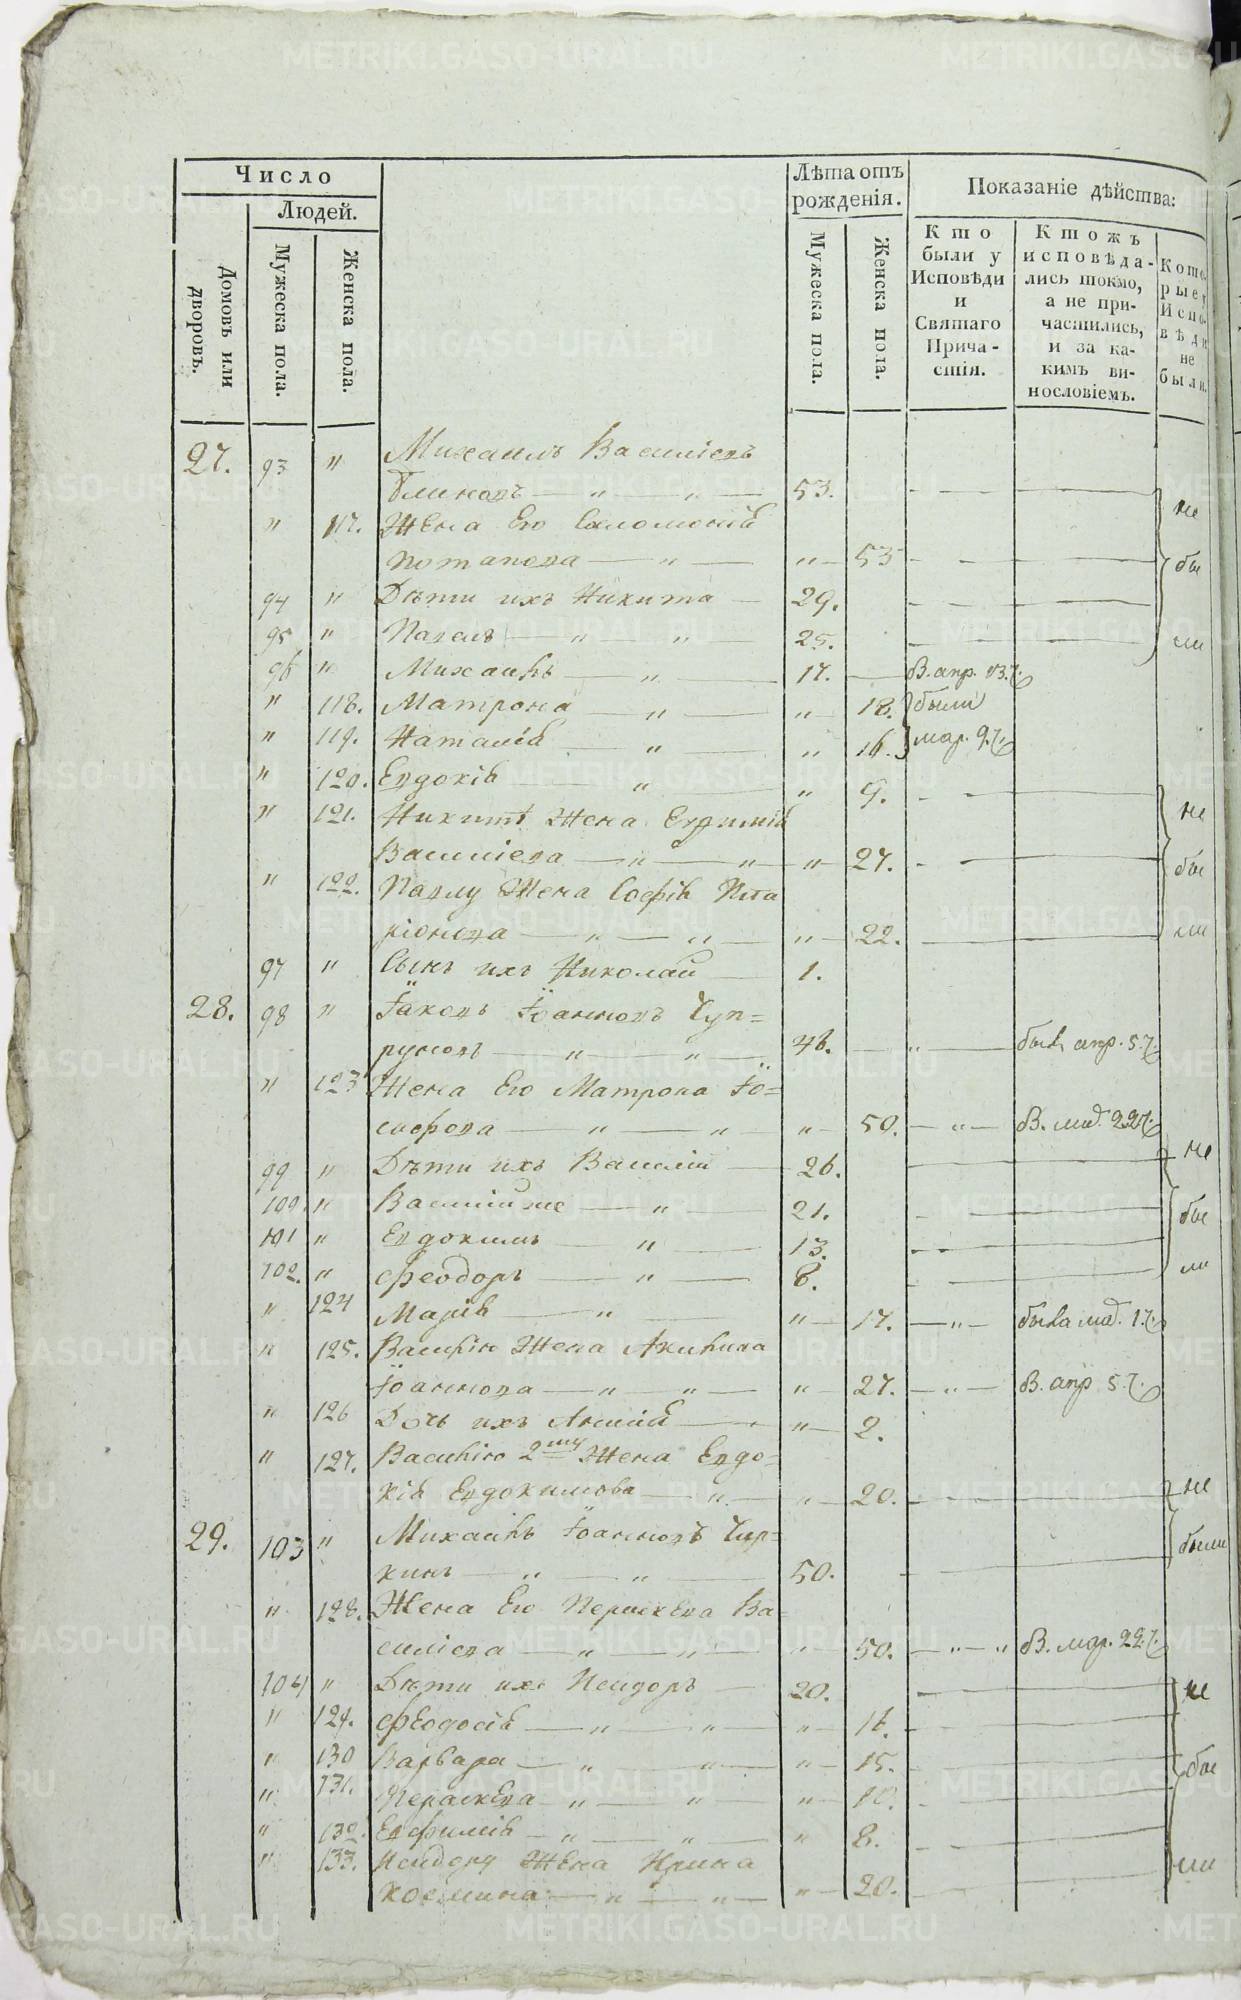 Число
Людей.
Домовъ или дворовъ.
Мужеска пола.
Женска пола.
Лѣта отъ рожденія.
Мужеска пола.
Женска пола.
Показаніе дѣйства:
Кто были у Исповѣди и Святаго Прича-стія.
Ктожъ исповѣда-лись токмо, а не при-частились, и за ка-кимъ ви-нословіемъ.
Кото-рые у Испо-вѣди не были.
27. 93 " Михаилъ Василіевъ
Блиновъ — " — " — 53. не
" 117. Жена Его Саломонія
Потапова — " — " — 53 бы
94 " Дѣти ихъ Никита — 29.
95 " Павелъ — " — " — 25. ли
96 " Михаилъ — " — 17. — В. апр. 13.
" 118. Матрона — " — " — 18. были
" 119. Наталія — " — " — 16. мар. 9.
" 120. Евдокія — " — " 9.
" 121. Никитѣ Жена Евдокія не
Василіева — " — " — " — 27. бы
" 122. Павлу Жена Софія Ила
ріонова — " — " — " — 22. ли
97 " Сынъ ихъ Николай — 1.
28. 98 " Іаковъ Іоанновъ Чуп=
руновъ — " — " — 46. — " — былъ апр. 5.
" 123 Жена Его Матрона Іо=
сифова — " — " — " — 50. — " — В. мар. 22.
99 " Дѣти ихъ Василій — 26. не
100. " Василій же — " — 21. бы
101 " Евдокимъ — " — 13.
102. " Феодоръ — " — 8. ли
" 124 Марія — " — " — 17. — " — была мар. 1.
" 125. Василію Жена Акилина
Іоаннова — " — " — " — 27. — " — В. апр 5.
" 126 Дочь ихъ Анисія — " — 2.
" 127. Василію 2му Жена Евдо=
кія Евдокимова — " — " — 20. не
29. 103 " Михаилъ Іоанновъ Чир=
кинъ — " — " — 50. были
" 128. Жена Его Параскева Ва=
силіева — " — " — " — 50. — " — " В. мар. 22.
104 " Дѣти ихъ Исидоръ — 20. не
" 129. Феодосія — " — " — " — 16.
" 130 Варвара — " — " — " — 15. бы
" 131. Параскева — " — " — " — 10.
" 132. Евфимія — " — " — " 8.
" 133. Исидору Жена Ирина ли
Космина — " — " — " — 20.
METRIKI.GASO-URAL.RU